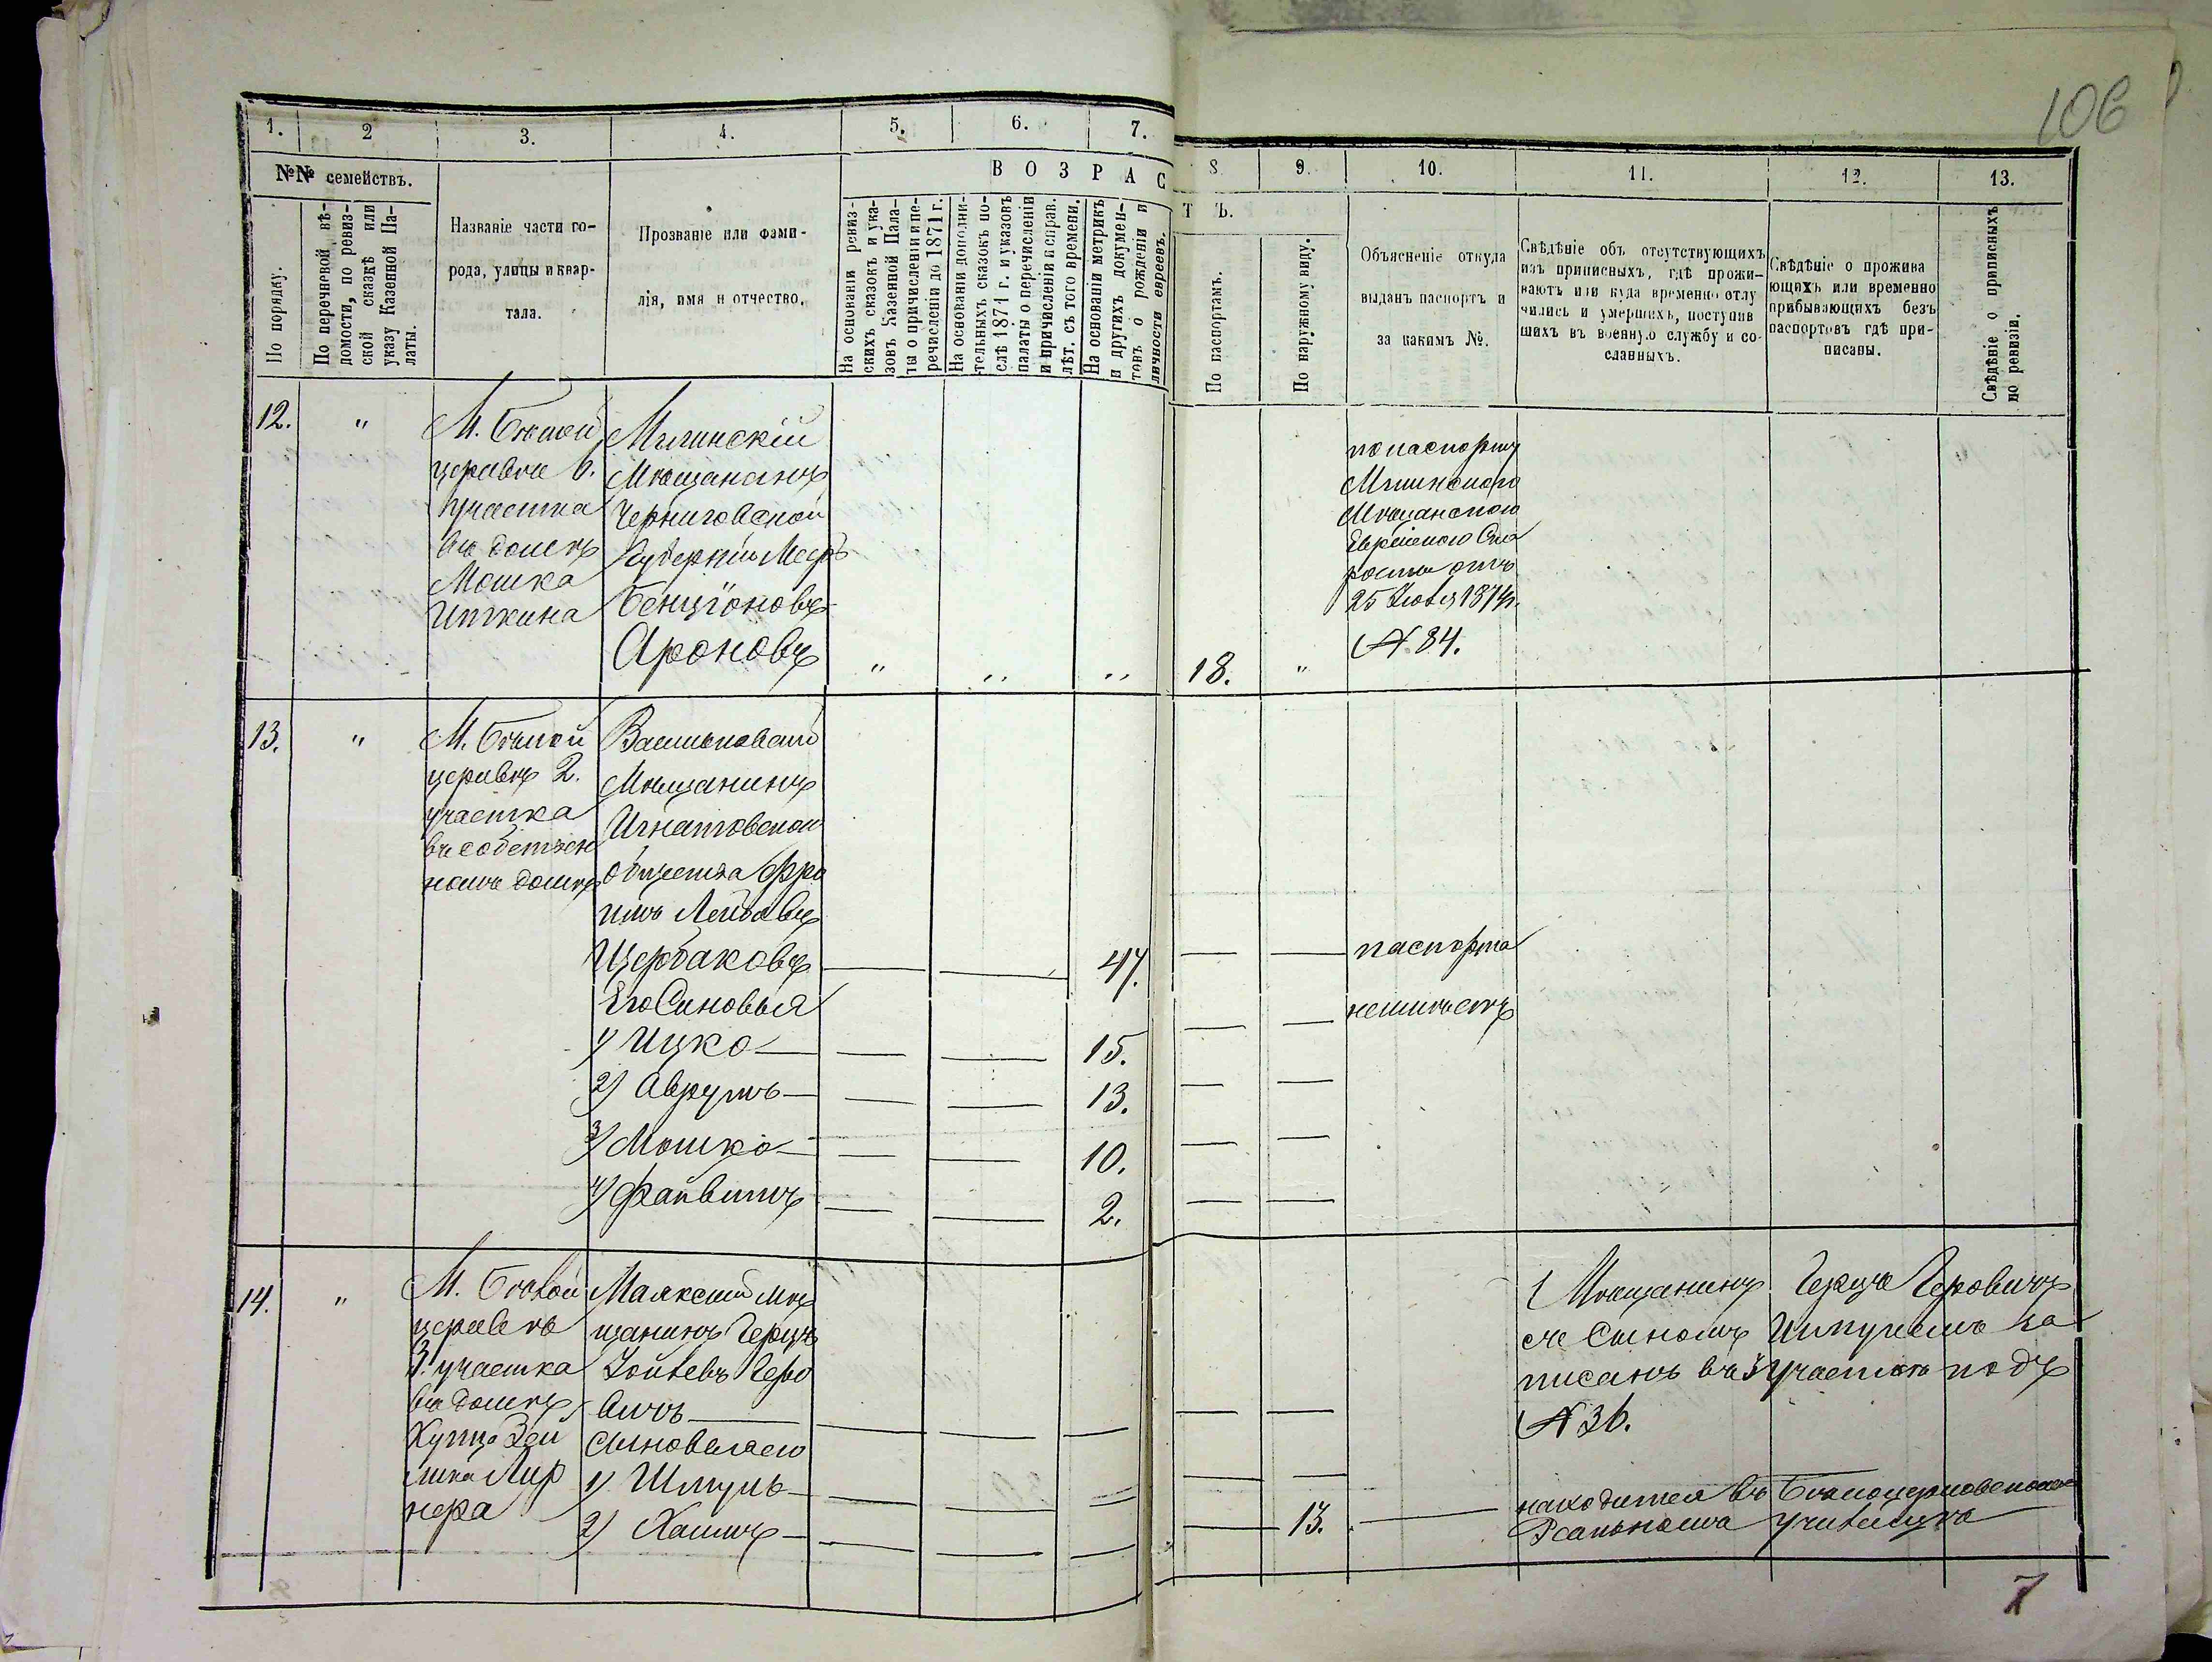 106
1. 2 3. 4. 5. 6. 7. 8 9. 10. 11. 12. 13.
№№ семействъ.
По порядку.
По перечневой вѣ-
домости, по ревиз-
ской сказкѣ или
указу Казенной Па-
латы.
Названіе части го-
рода, улицы и квар-
тала.
Прозваніе или фами-
лія, имя и отчество.
ВОЗРАСТЪ.
На основаніи ревиз-
скихъ сказокъ и ука-
зовъ Казенной Пала-
ты о причисленіи и пе-
речисленіи до 1871 г.
На основаніи дополни-
тельныхъ сказокъ по-
слѣ 1871 г. и указовъ
палаты о перечисленіи
и причисленіи и справ.
лѣт. съ того времени.
На основаніи метрикъ
и другихъ докумен-
товъ о рожденіи и
личности евреевъ.
По паспортамъ.
По наружному виду.
Объясненіе откуда
выданъ паспортъ и
за какимъ №.
Свѣдѣніе объ отсутствующихъ
изъ приписныхъ, гдѣ прожи-
ваютъ или куда временно отлу
чились и умершихъ, поступив
шихъ въ военную службу и со-
сланныхъ.
Свѣдѣніе о прожива
ющихъ или временно
прибывающихъ безъ
паспортовъ гдѣ при-
писаны.
Свѣдѣніе о приписныхъ
по ревизіи.
12. "
М. Бѣлой
церквѣ
участка
въ домѣ
Мошка
Иткина
Мглинскій
Мѣщанинъ
Черниговской
Губерніи Меер
Бенціоновъ
Ароновъ " " " 18. "
по паспорту
Мглинскаго
Мѣщанскаго
Еврейскаго Ста
росты отъ
25 Іюля 1874 г.
№ 84.
13. "
М. Бѣлой
церквѣ 2.
участка
въ собствен
номъ домѣ
Васильковскій
Мѣщанинъ
Игнатовскаго
общества Фро
имъ Лейбовъ
Щербаковъ — — 47. — — паспорта
Его Сыновья — — неимѣетъ
1) Ицко — — — 15. — —
2) Аврумъ — — — 13. — —
3) Мошко — — — 10. — —
4) Файвишъ — — 2.
14. "
М. Бѣлой
церквѣ
3. участка
въ домѣ
Купца Зей
лика Лир
нера
Маякскій мѣ
щанинъ Герцъ
Зойлевъ Геро
вичъ — — — — — —
Сыновья его
1) Шмуль — — — — — —
2) Хаимъ — — — — — 13. —
1 Мѣщанинъ Герцъ Геровичъ
съ Сыномъ Шмулемъ за
писанъ въ 3 участкѣ подъ
№ 36.
находится въ Бѣлоцерковскомъ
Реальномъ училищѣ
7